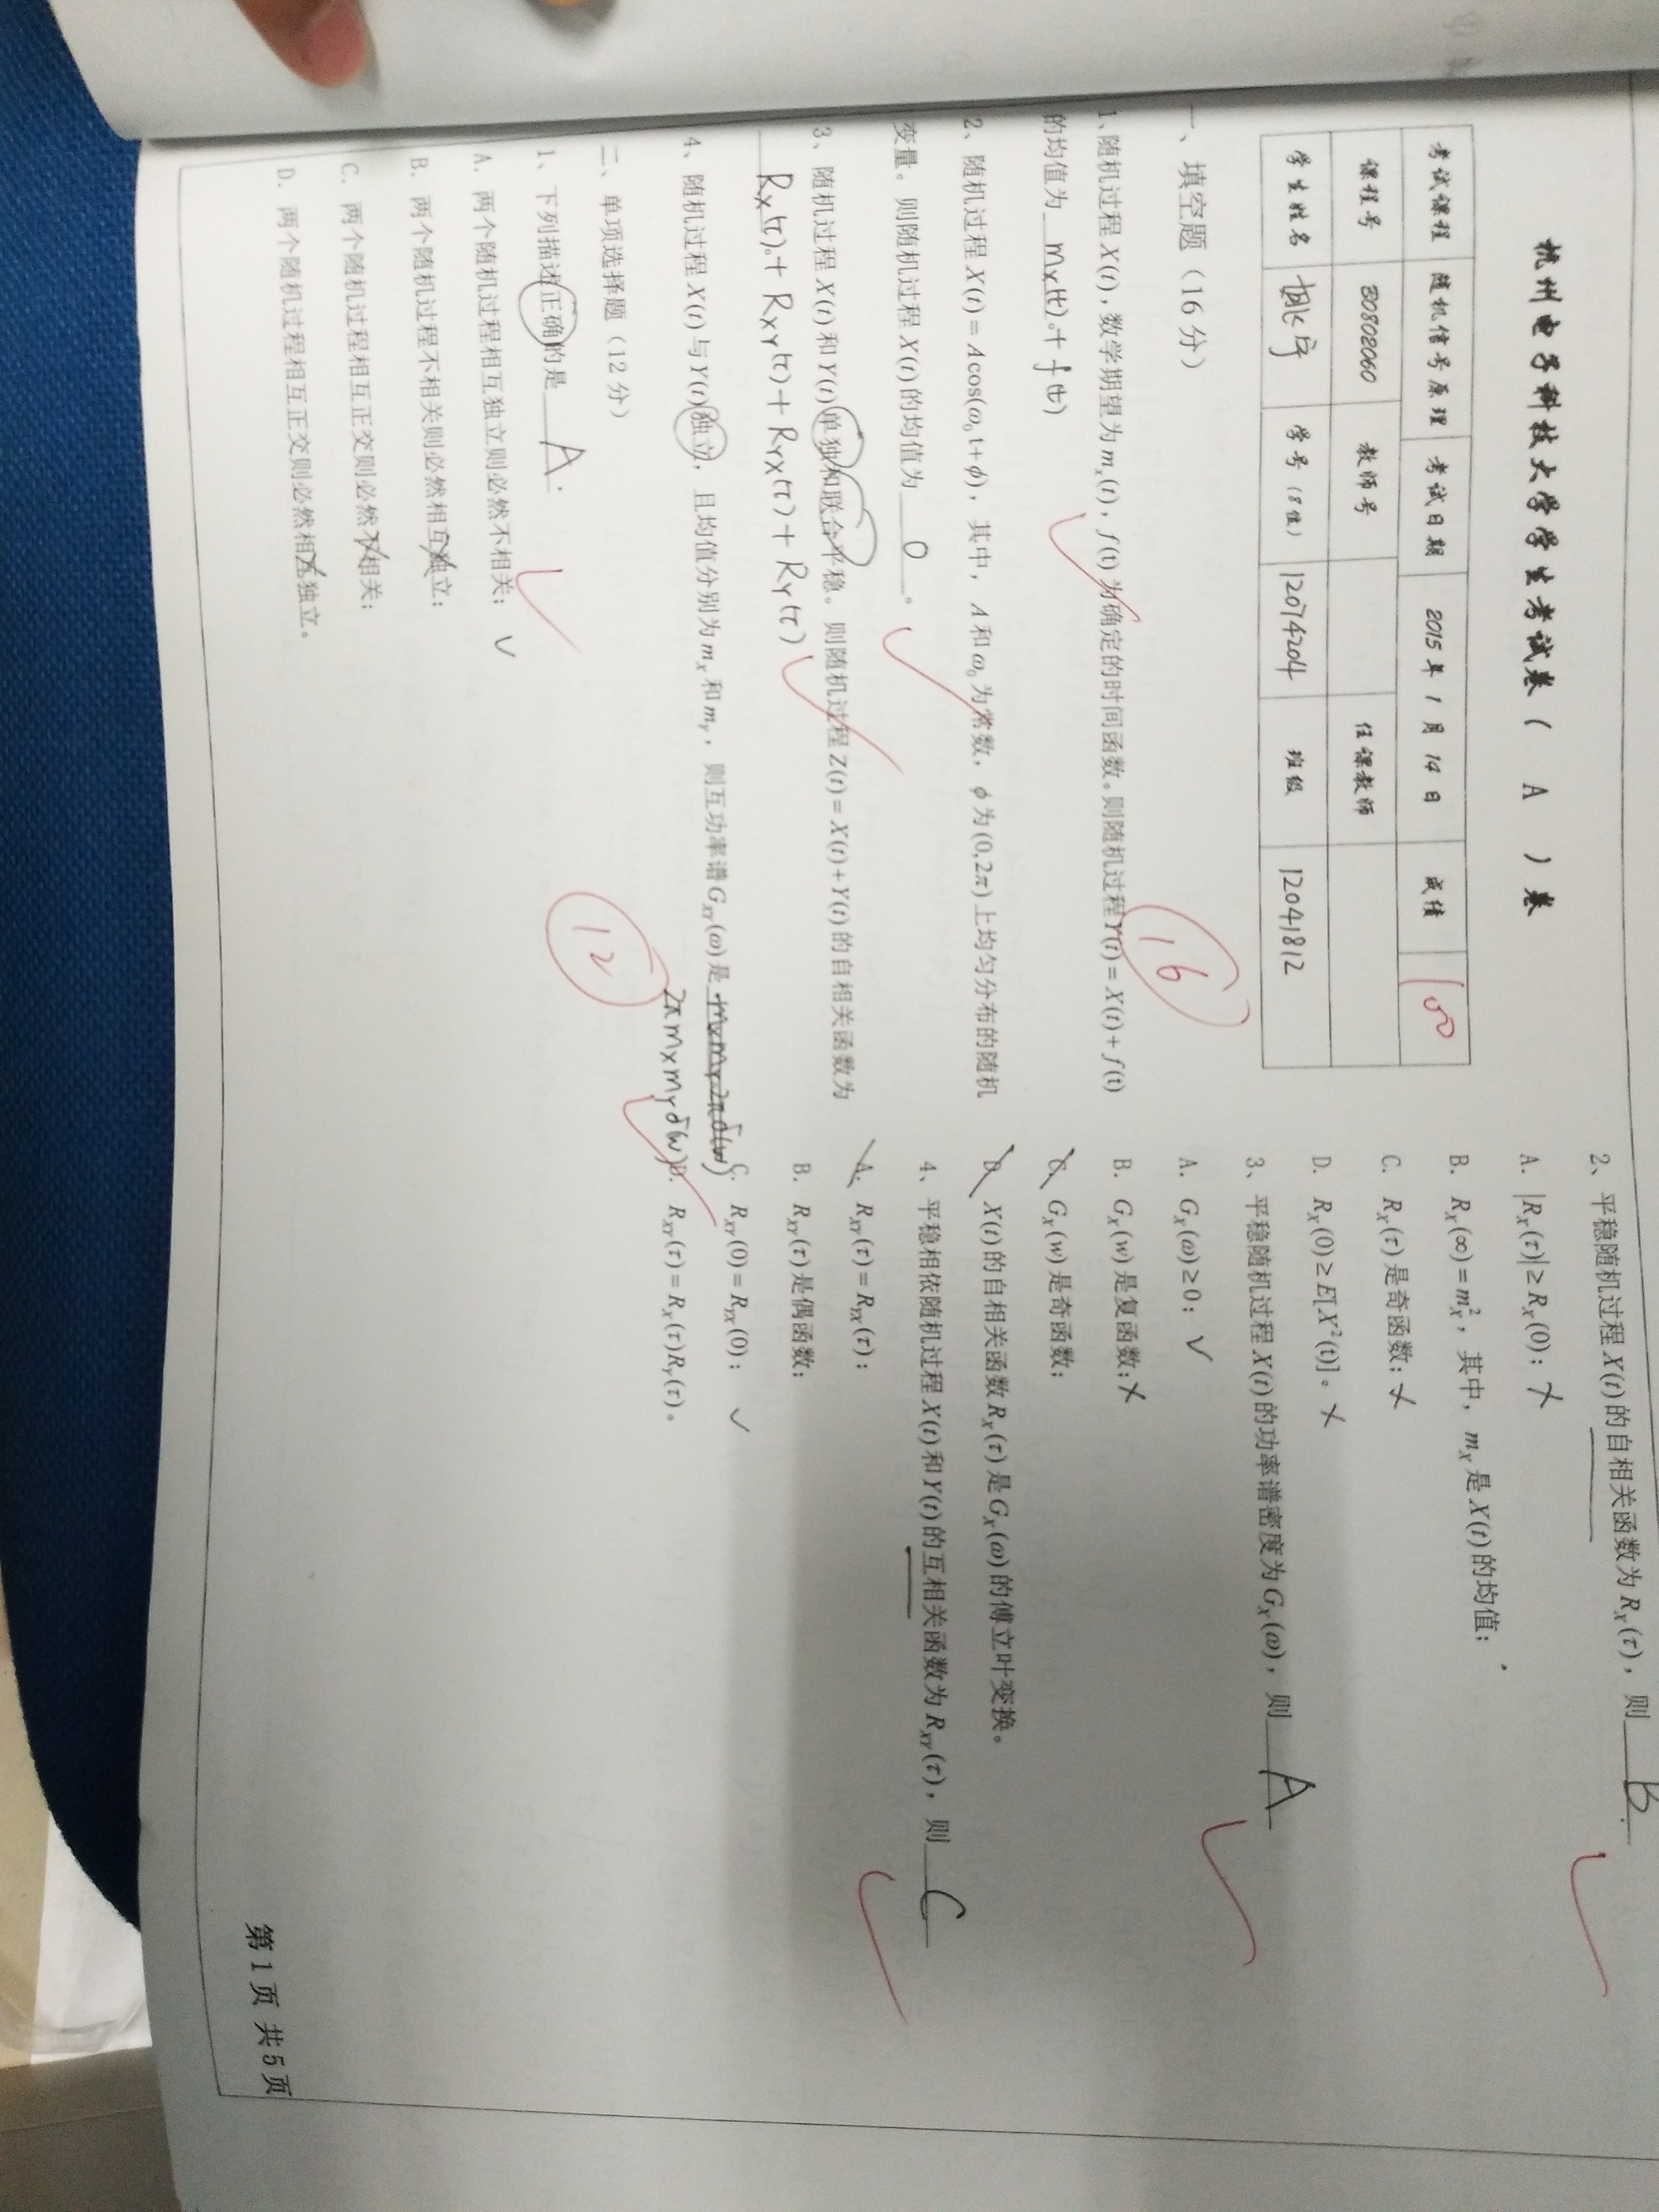 杭州电子科技大学学生考试卷（ A ）卷
考试课程 随机信号原理 考试日期 2015 年 1 月 14 日 成绩 100
课程号 B0802060 教师号 任课教师
学生姓名 学号（8位） 12074204 班级 12041812
一、填空题（16 分）
16
1、随机过程 X(t)，数学期望为 m_x(t)，f(t) 为确定的时间函数。则随机过程 Y(t) = X(t) + f(t)
的均值为 m_X(t) + f(t) 。
2、随机过程 X(t) = A cos(ω₀ t+ϕ)，其中，A 和 ω₀ 为常数，ϕ 为 (0,2π) 上均匀分布的随机
变量。则随机过程 X(t) 的均值为 0 。
3、随机过程 X(t) 和 Y(t) 单独和联合平稳。则随机过程 Z(t) = X(t)+Y(t) 的自相关函数为
R_X(τ) + R_XY(τ) + R_YX(τ) + R_Y(τ) 。
4、随机过程 X(t) 与 Y(t) 独立，且均值分别为 m_X 和 m_Y，则互功率谱 G_XY(ω) 是 m_X m_Y 2π δ(w)
2π m_X m_Y δ(w)
二、单项选择题（12 分）
12
1、下列描述正确的是 A.
A. 两个随机过程相互独立则必然不相关； ✓
B. 两个随机过程不相关则必然相互独立；
C. 两个随机过程相互正交则必然不相关；
D. 两个随机过程相互正交则必然相互独立。
2、平稳随机过程 X(t) 的自相关函数为 R_X(τ)，则 B.
A. |R_X(τ)| ≥ R_X(0)； ×
B. R_X(∞) = m_X²，其中，m_X 是 X(t) 的均值；
C. R_X(τ) 是奇函数； ×
D. R_X(0) ≥ E[X²(t)]。 ×
3、平稳随机过程 X(t) 的功率谱密度为 G_X(ω)，则 A
A. G_X(ω) ≥ 0； ✓
B. G_X(w) 是复函数； ×
C. G_X(w) 是奇函数；
D. X(t) 的自相关函数 R_X(τ) 是 G_X(ω) 的傅立叶变换。
4、平稳相依随机过程 X(t) 和 Y(t) 的互相关函数为 R_XY(τ)，则 C
A. R_XY(τ) = R_YX(τ)；
B. R_XY(τ) 是偶函数；
C. R_XY(0) = R_YX(0)； ✓
D. R_XY(τ) = R_X(τ)R_Y(τ)。
第 1 页 共 5 页